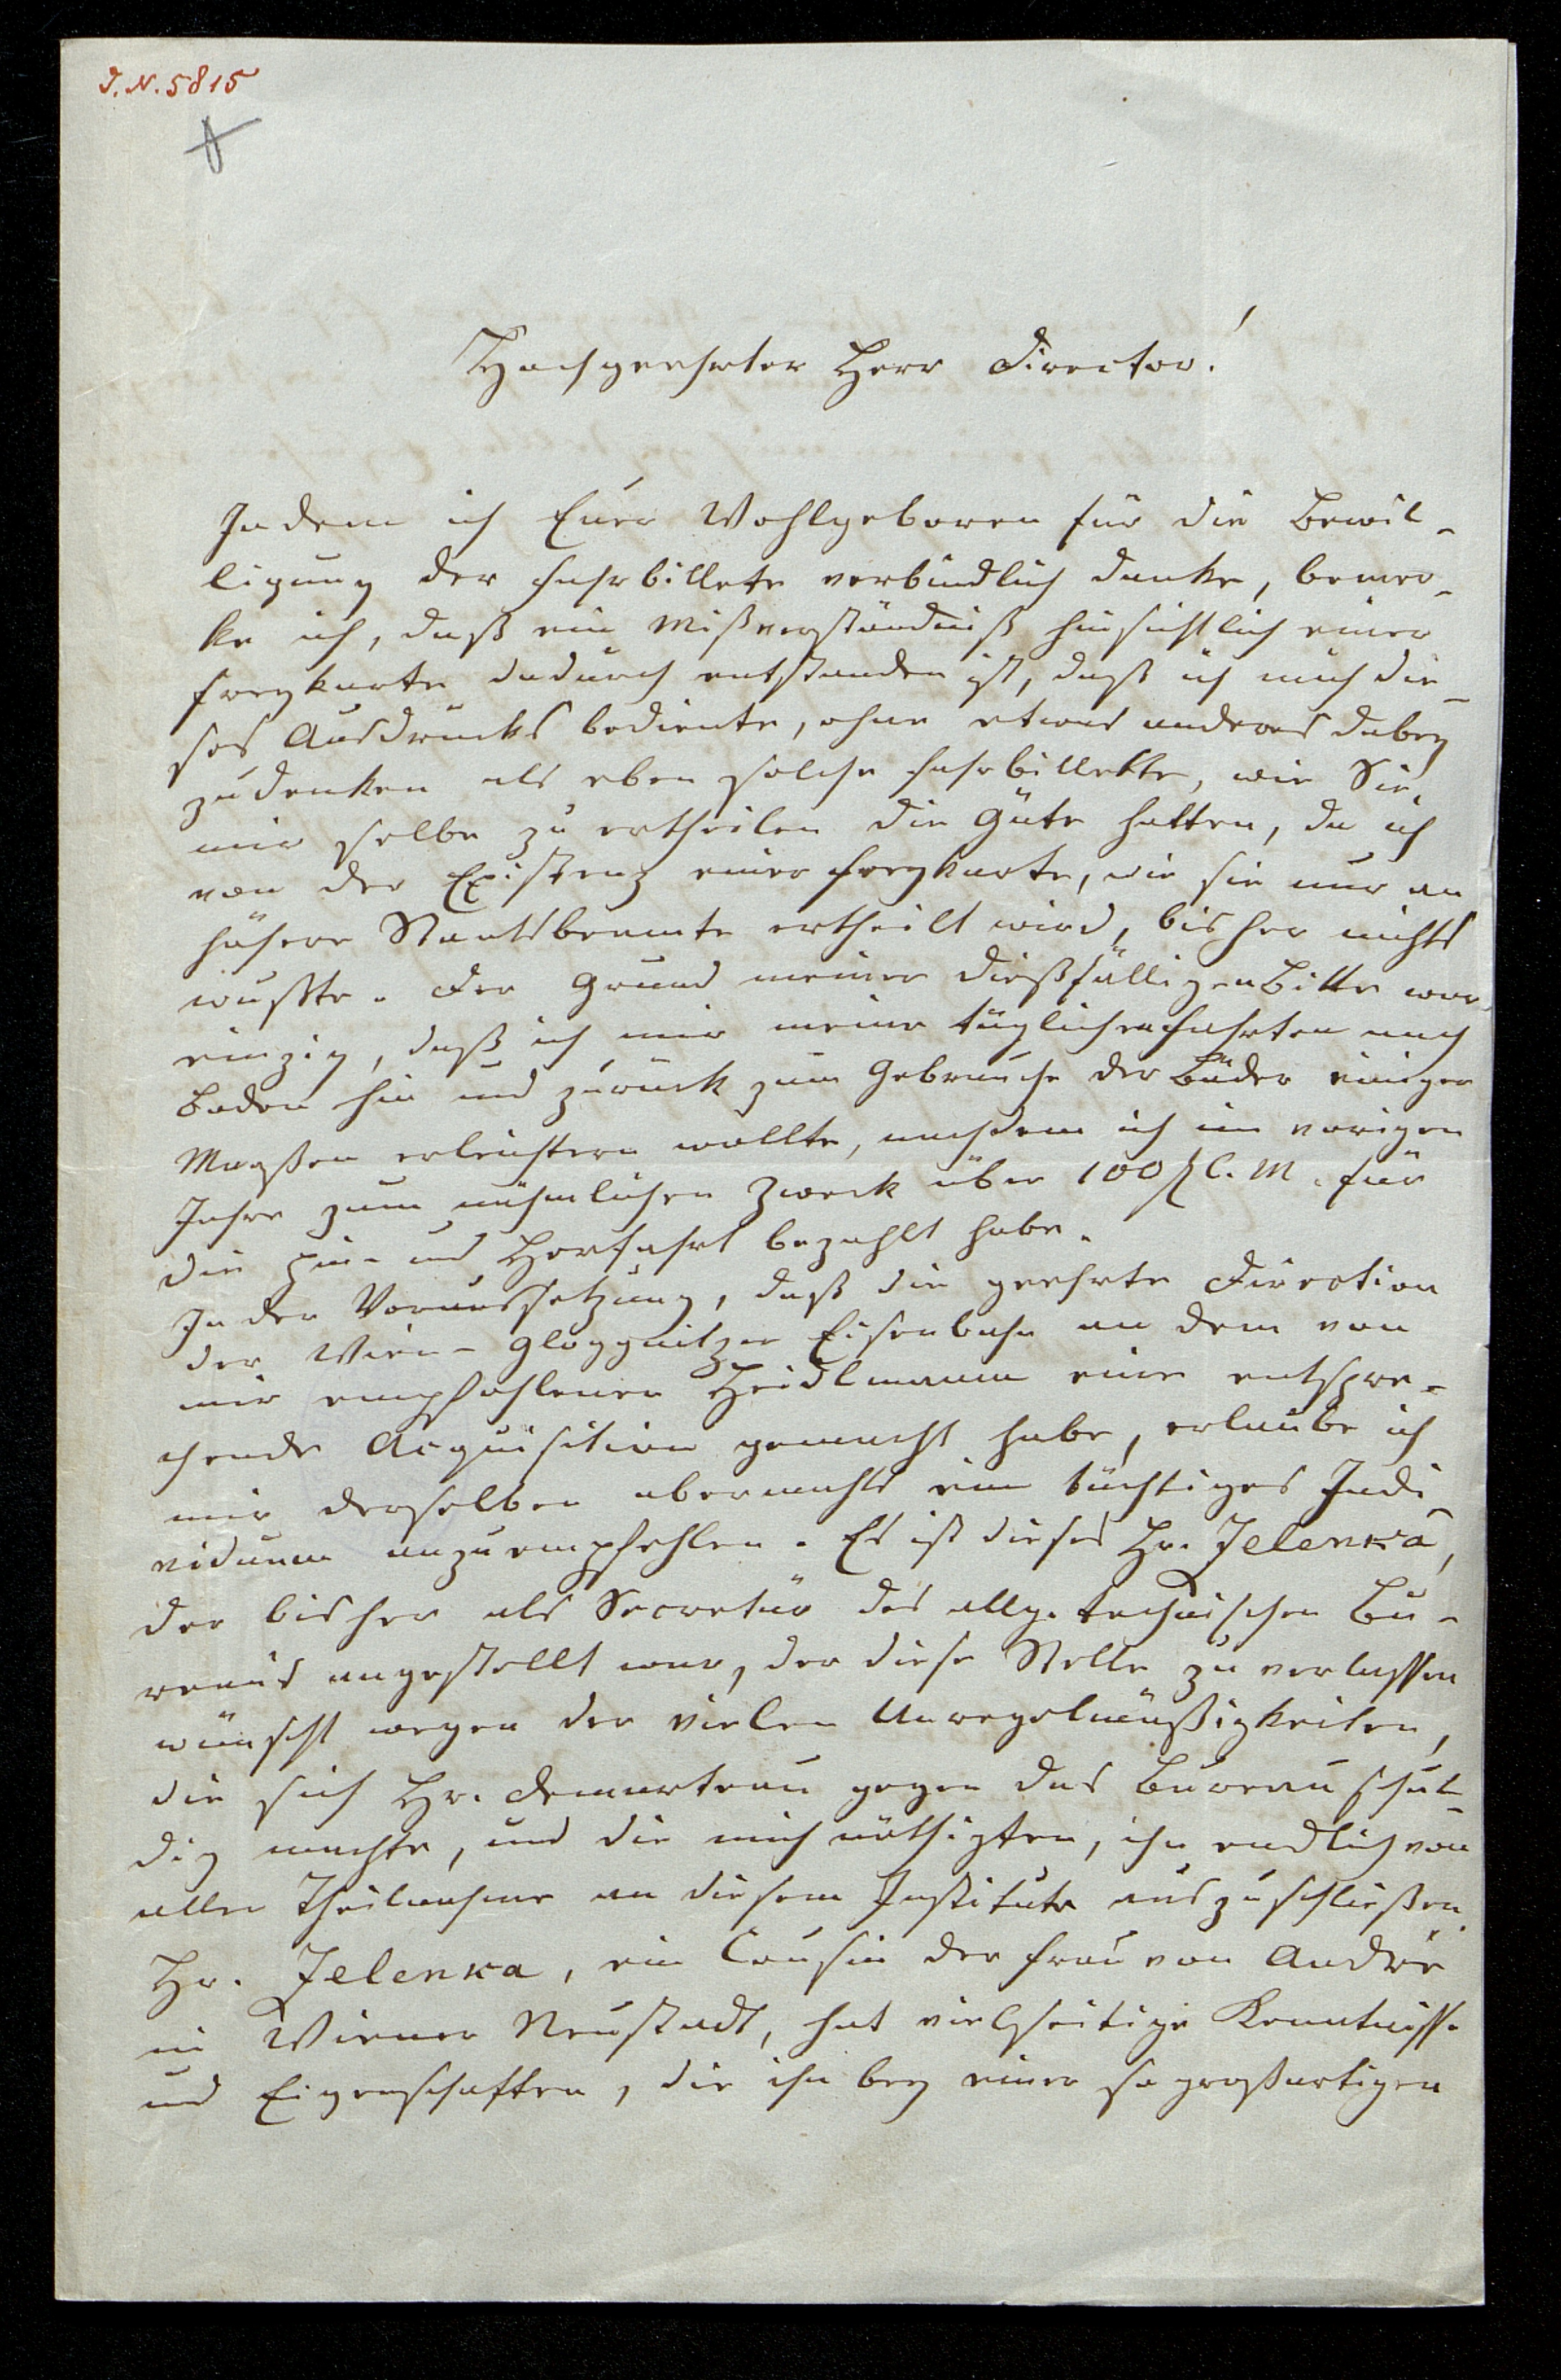 J. N. 5815
Hochgeehrter Herr Director!
Indem ich Euer Wohlgeboren für die Bewil-
ligung der Fahrbillete verbindlich danke, bemer-
ke ich, daß ein Mißverständniß hinsichtlich einer
Freykarte dadurch entstanden ist, daß ich mich die-
ses Ausdrucks bediente, ohne etwas anderes dabey
zu denken als eben solche Fahrbillette, wie Sie
mir selbe zu ertheilen die Güte hatten, da ich
von der Existenz einer Freykarte, wie sie nur an
höhere Staatsbeamte ertheilt wird, bisher nichts
wußte. Der Grund meiner dießfälligen Bitte war
einzig, daß ich mir meine täglichen Fahrten nach
Baden hin und zurück zum Gebrauche der Bäder einiger
Maßen erleichtern wollte, nachdem ich im vorigen
Jahre zum nähmlichen Zweck über 100 fl C. M. für
die Hin- und Herfahrt bezahlt habe.
In der Voraussetzung, daß die geehrte Direction
der Wien-Gloggnitzer Eisenbahn an dem von
mir empfohlenen Heidlmann eine entspre-
chende Acquisition gemacht habe, erlaube ich
mir derselben abermahls ein tüchtiges Indi-
viduum anzuempfehlen. Es ist dieses Hr. Jelenka,
der bisher als Secretär des allg. technischen Bu-
reaus angestellt war, der diese Stelle zu verlassen
wünscht wegen der vielen Unregelmäßigkeiten,
die sich Hr. Demarteau gegen das Bureau schul-
dig machte, und die mich nöthigten, ihn endlich von
aller Theilnahme an diesem Institute auszuschließen.
Hr. Jelenka, ein Cousin der Frau von André
in Wiener Neustadt, hat vielseitige Kenntnisse
und Eigenschaften, die ihn bey einer so großartigen